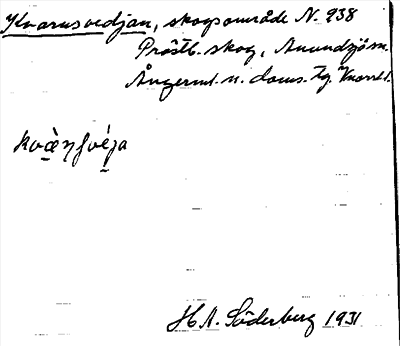 Kvarnsvedjan, skogsområde N. 938
Prästb. skog, Anundsjö sn.
Ångerml. n. doms.
kvὲηsvéja
H. A. Söderberg 1931